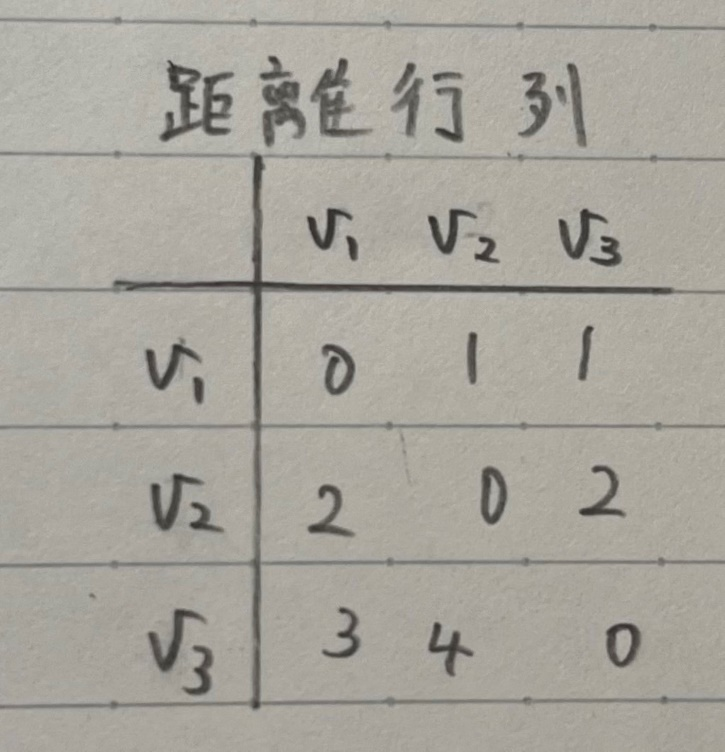 距離行列
V₁ V₂ V₃
V₁ 0 1 1
V₂ 2 0 2
V₃ 3 4 0